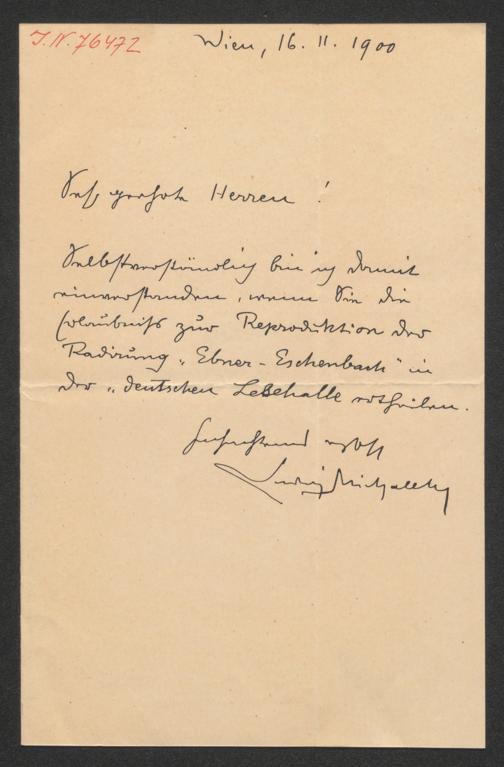 J.N. 76472
Wien, 16. II. 1900
Sehr geehrte Herren !
Selbstverständlich bin ich damit
einverstanden, wenn Sie die
Erlaubniß zur Reproduktion der
Radirung „Ebner-Eschenbach" in
der „deutschen Lesehalle ertheilen.
Hochachtend ergbst
Ludwig Michalek